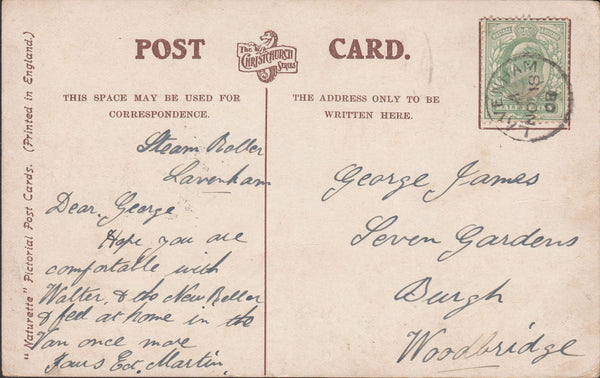 "Naturette" Pictorial Post Cards. (Printed in England.)
POST CARD.
The
CHRISTCHURCH
SERIES
THIS SPACE MAY BE USED FOR
CORRESPONDENCE.
THE ADDRESS ONLY TO BE
WRITTEN HERE.
Steam Roller
Lavenham
Dear, George
Hope you are
comfortable with
Walter, & the New Roller
& feel at home in the
Van once more
Yours Ed. Martin.
George James
Seven Gardens
Burgh
Woodbridge
LAVENHAM
NO 18
08